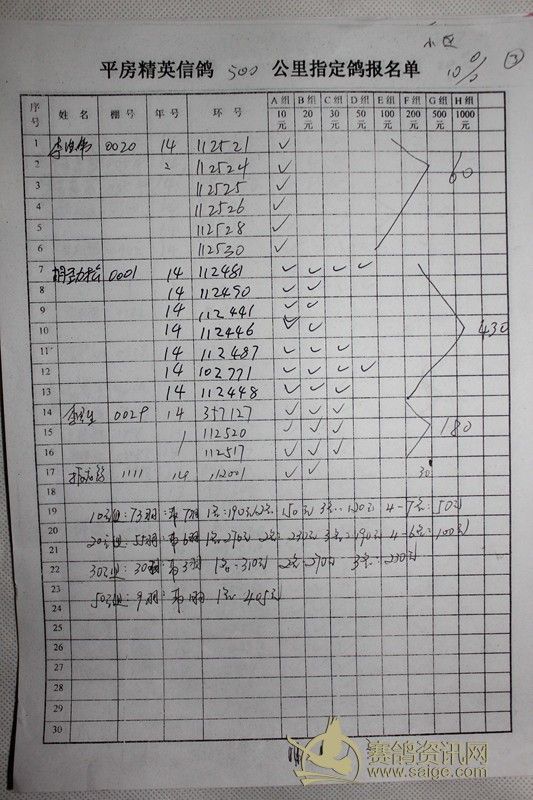 小区
平房精英信鸽 500 公里指定鸽报名单
10%
序号 姓名 棚号 年号 环号 A组10元 B组20元 C组30元 D组50元 E组100元 F组200元 G组500元 H组1000元
1 0020 14 112521 ✓
2 112524 ✓
3 112525 ✓ 60
4 112526 ✓
5 112528 ✓
6 112530 ✓
7 胡劲松 0001 14 112481 ✓ ✓ ✓ ✓
8 14 112490 ✓ ✓
9 14 112441 ✓ ✓
10 14 112446 ✓ ✓ 430
11 14 112487 ✓ ✓ ✓
12 14 102771 ✓ ✓ ✓ ✓
13 14 112448 ✓ ✓ ✓
14 0029 14 357127 ✓ ✓ ✓
15 112520 ✓ ✓ ✓ 180
16 112517 ✓ ✓ ✓
17 1111 14 112001 ✓ ✓ 30
18
19 10元组:73羽: 7羽 1名:190元 2名: 150元 3名: 120元 4-7名:50元
20
21 20元组:55羽: 6羽 1名270元 2名:230元 3名:190元 4-6名:100元
22 30元组:30羽: 3羽 1名:310元 2名:270元 3名:230元
23 50元组:9羽: 1羽 1名 405元
24
25
26
27
28
29
30
赛鸽资讯网
www.saige.com